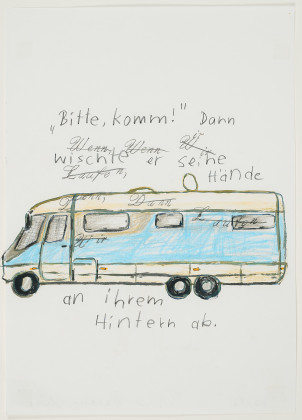 „Bitte, komm!" Dann
Wenn, Wenn
wischte er seine
Laufen,
Hände
Dann, Dann
an ihrem
Hintern ab.